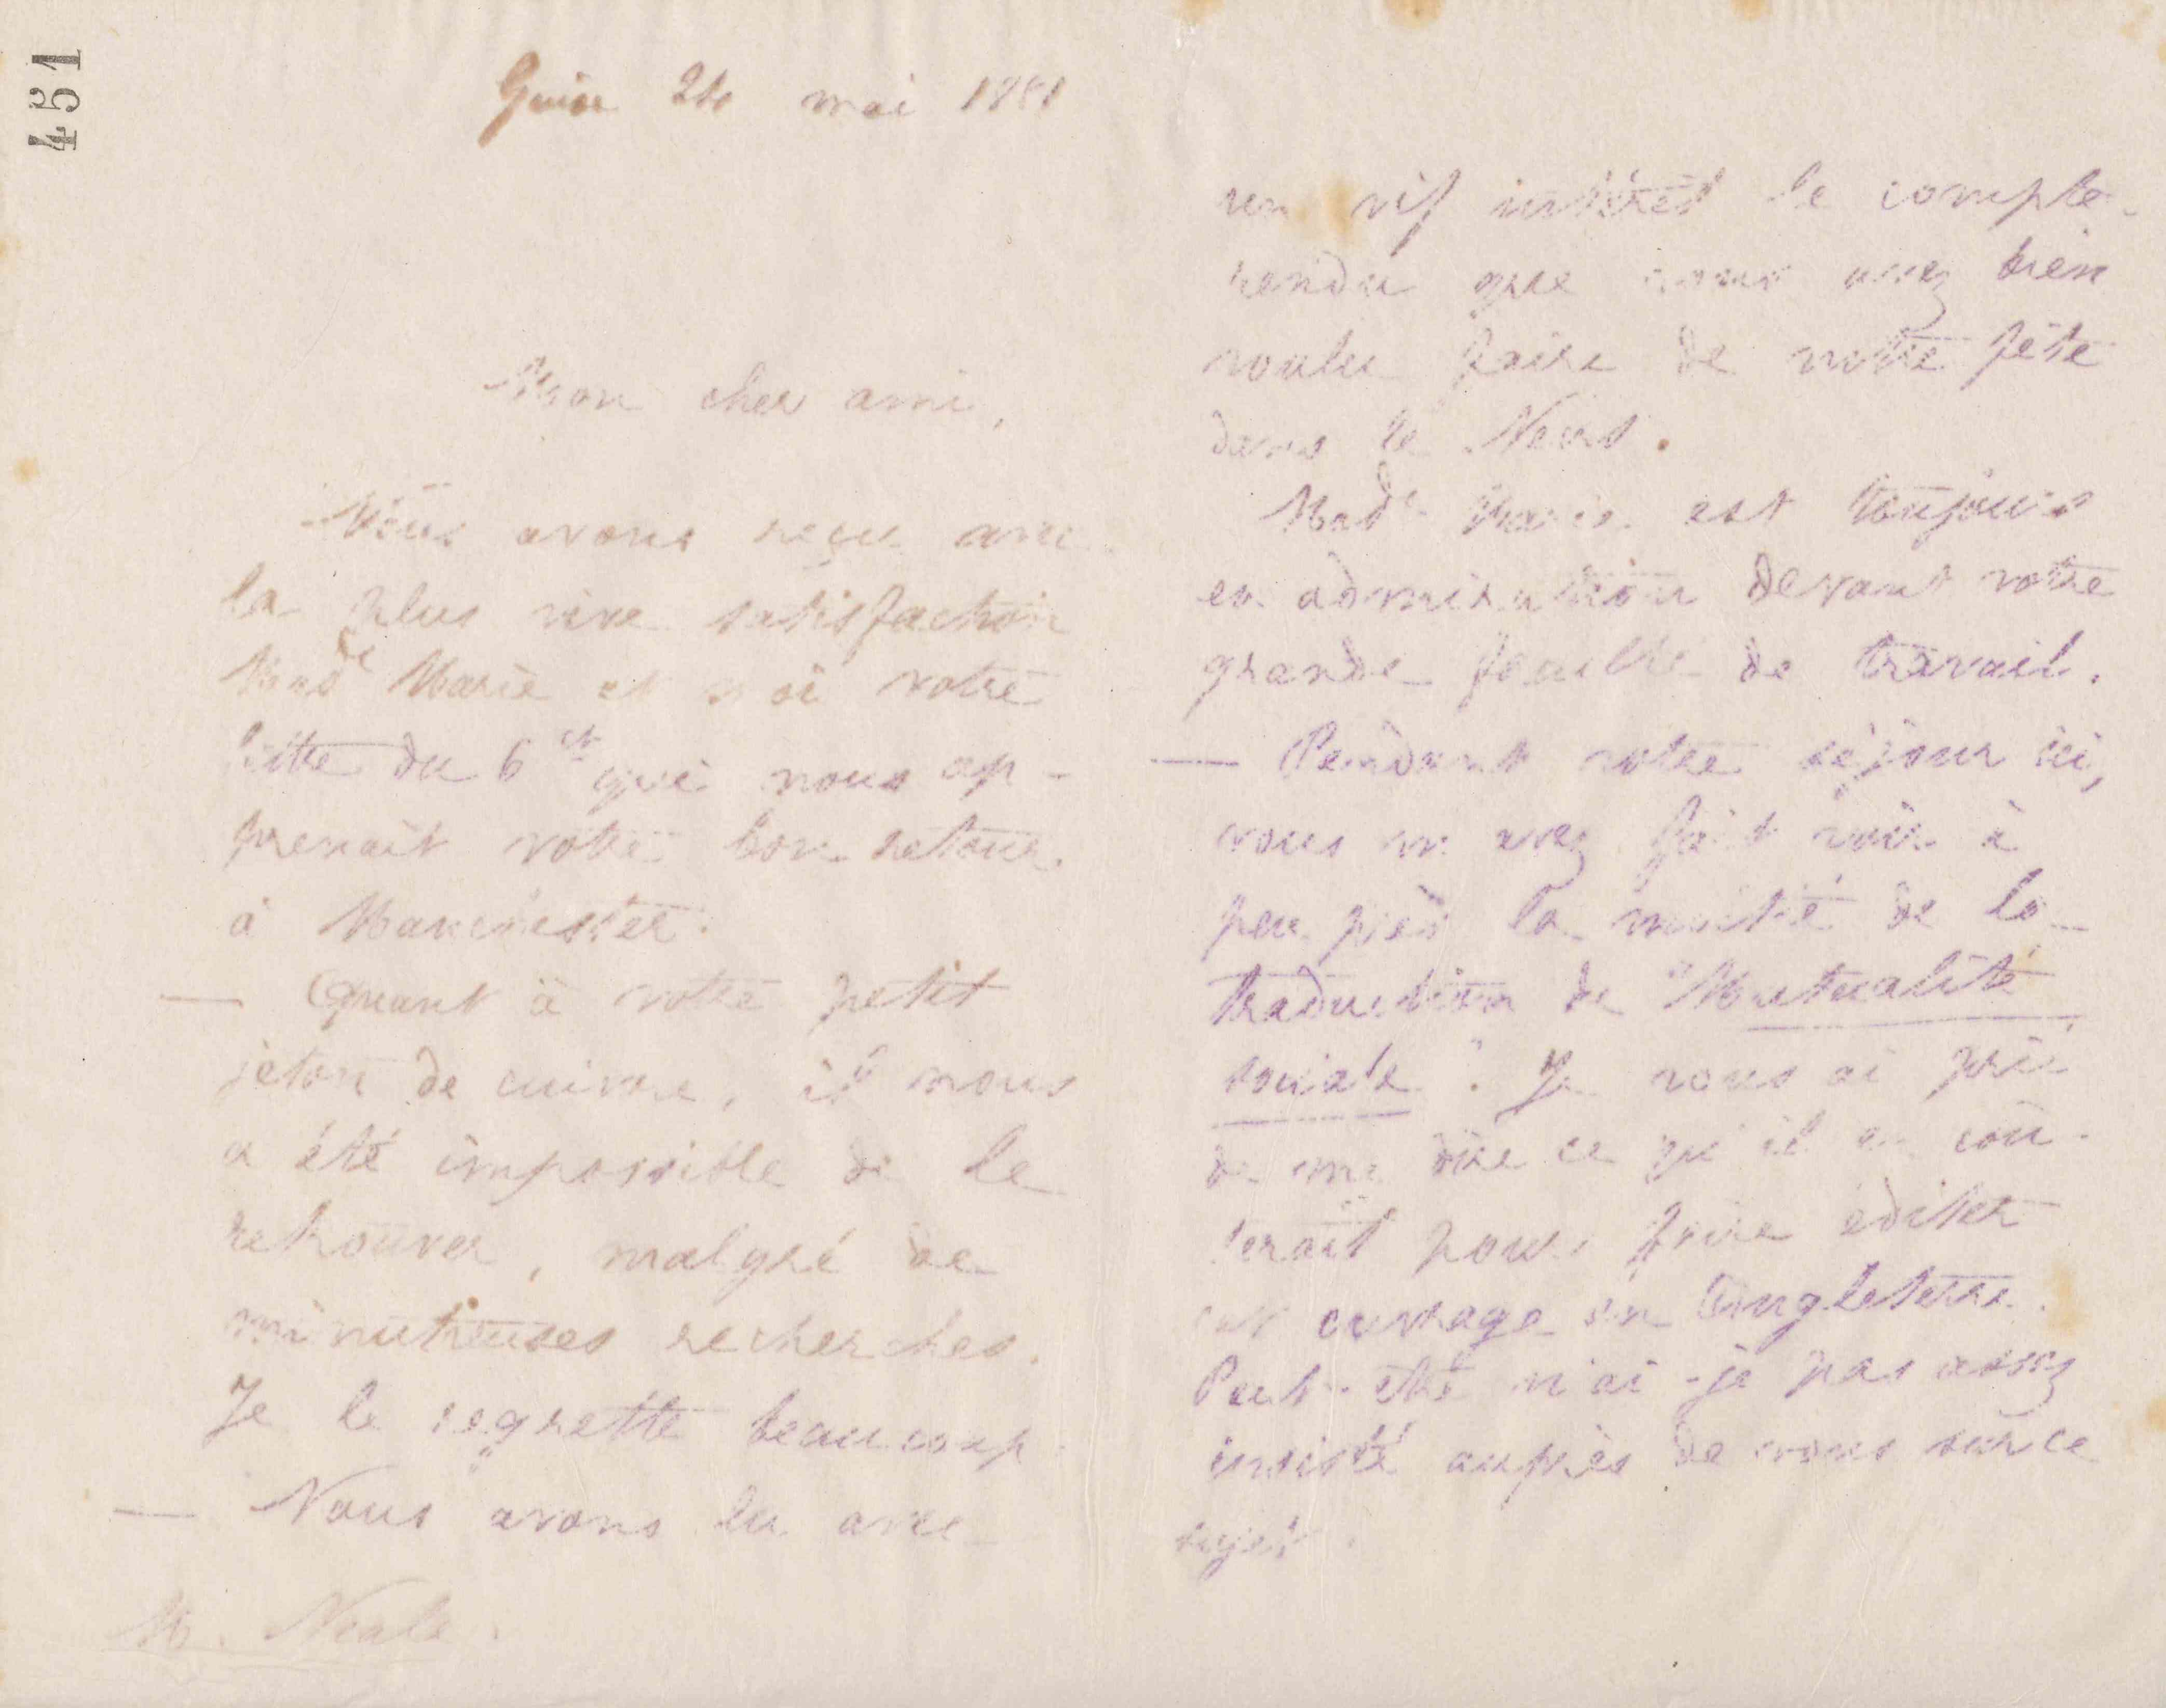 451
Guise 24 mai 1881
Mon cher ami,
Nous avons reçu avec
la plus vive satisfaction
Made Marie et moi votre
lettre du 6 ct qui nous ap-
prenait votre bon retour
à Manchester.
— Quant à votre petit
jeton de cuivre, il nous
a été impossible de le
retrouver, malgré de
minutieuses recherches.
Je le regrette beaucoup.
— Nous avons lu avec
M. Neale.
un vif intérêt le compte-
rendu que vous avez bien
voulu faire de notre fête
dans le News.
Made Marie est toujours
en admiration devant votre
grande faculté de travail.
— Pendant votre séjour ici,
vous m'avez fait voir à
peu près la moitié de la
traduction de "Mutualité
sociale". Je vous ai prié
de me dire ce qu'il en coû-
terait pour faire éditer
cet ouvrage en Angleterre.
Peut-être n'ai-je pas assez
insisté auprès de vous sur ce
sujet.